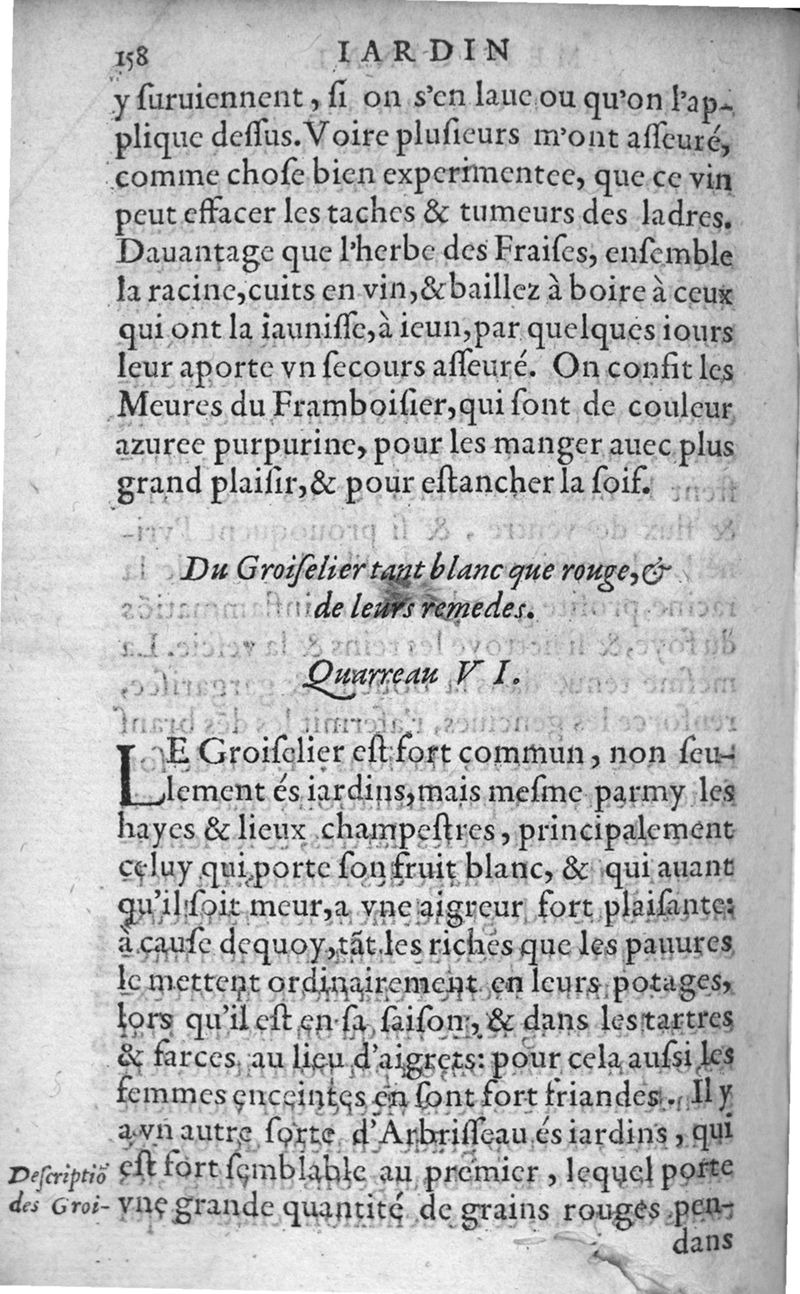 158 IARDIN
y ſuruiennent, ſi on s'en laue ou qu'on l'ap-
plique deſſus. Voire pluſieurs m'ont aſſeuré,
comme choſe bien experimentee, que ce vin
peut effacer les taches & tumeurs des ladres.
Dauantage que l'herbe des Fraiſes, enſemble
la racine, cuits en vin, & baillez à boire à ceux
qui ont la iauniſſe, à ieun, par quelques iours
leur aporte vn ſecours aſſeuré. On confit les
Meures du Framboiſier, qui ſont de couleur
azuree purpurine, pour les manger auec plus
grand plaiſir, & pour eſtancher la ſoif.
Du Groiſelier tant blanc que rouge, &
de leurs remedes.
Quarreau VI.
LE Groiſelier eſt fort commun, non ſeu-
lement és iardins, mais meſme parmy les
hayes & lieux champeſtres, principalement
celuy qui porte ſon fruit blanc, & qui auant
qu'il ſoit meur, a vne aigreur fort plaiſante:
à cauſe dequoy, tãt les riches que les pauures
le mettent ordinairement en leurs potages,
lors qu'il eſt en ſa ſaiſon, & dans les tartres
& farces au lieu d'aigrets: pour cela auſsi les
femmes enceintes en ſont fort friandes. Il y
a vn autre ſorte d'Arbriſſeau és iardins, qui
Deſcriptiõ eſt fort ſemblable au premier, lequel porte
des Groi- vne grande quantité de grains rouges pen-
dans